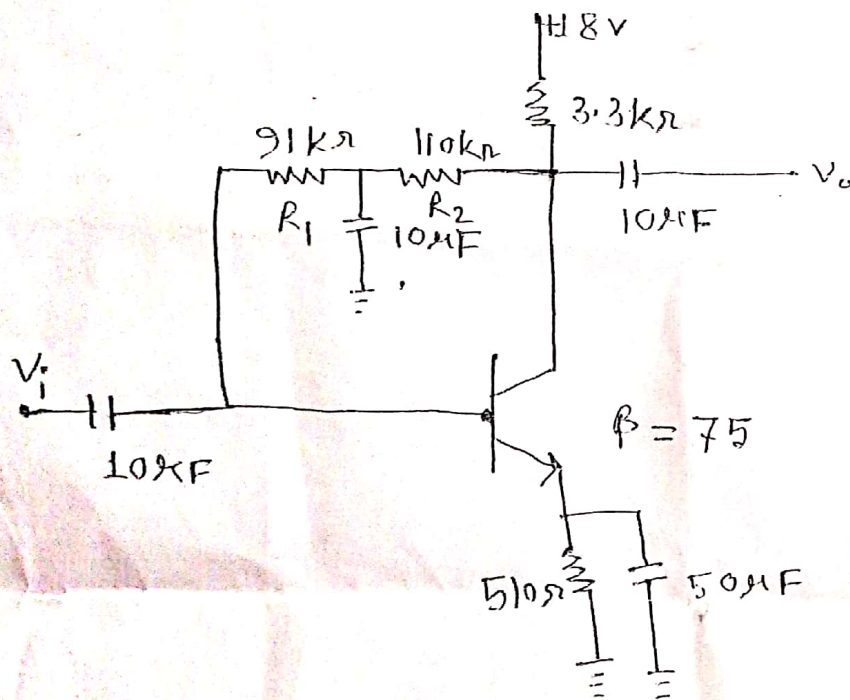 +18V
3.3kΩ
91kΩ
110kΩ
Vo
R1
R2
10μF
10μF
Vi
10μF
β = 75
510Ω
50μF